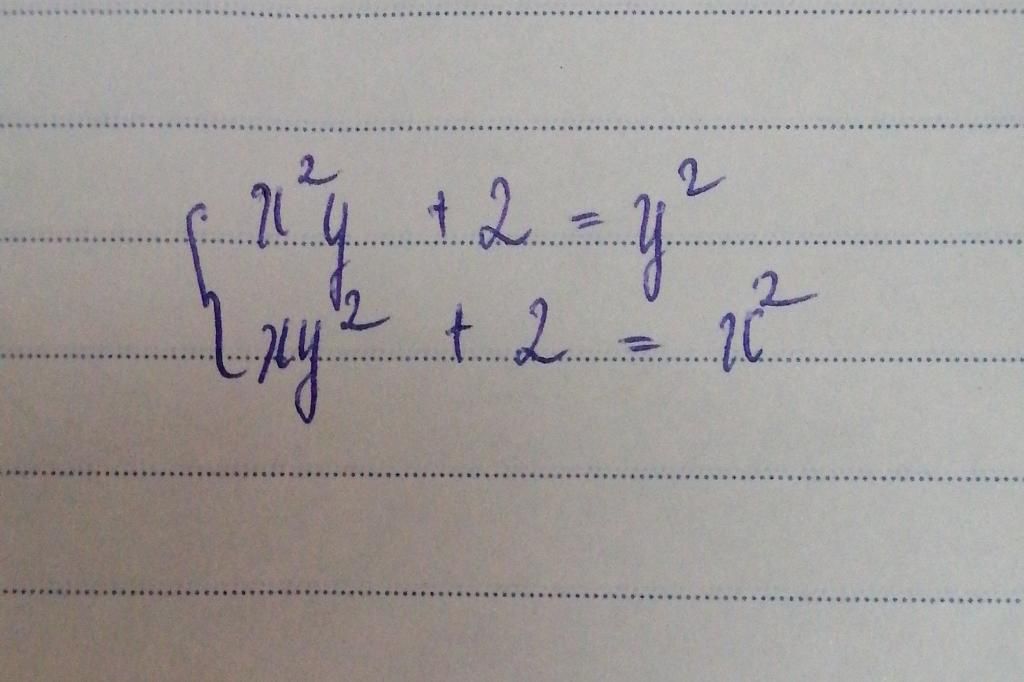 x²y + 2 = y²
xy² + 2 = x²